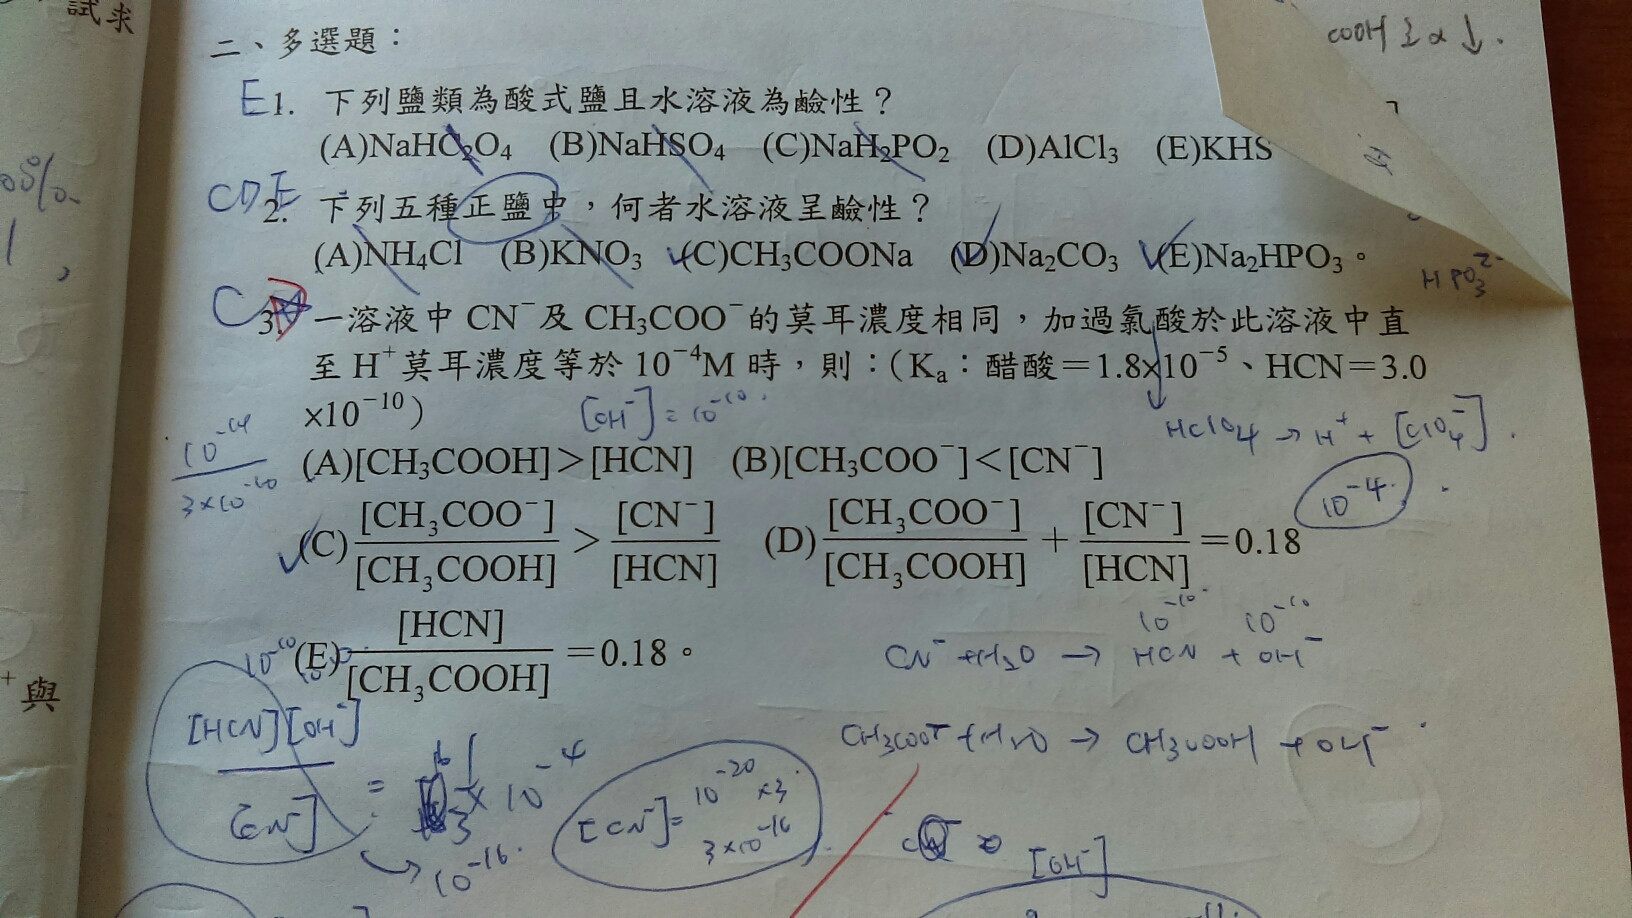 試求
二、多選題：
COOH ξ α ↓.
E 1. 下列鹽類為酸式鹽且水溶液為鹼性？
(A)NaHC₂O₄ (B)NaHSO₄ (C)NaH₂PO₂ (D)AlCl₃ (E)KHS
CDE 2. 下列五種正鹽中，何者水溶液呈鹼性？
(A)NH₄Cl (B)KNO₃ (C)CH₃COONa (D)Na₂CO₃ (E)Na₂HPO₃。
HPO₃²⁻
C 3. 一溶液中 CN⁻及 CH₃COO⁻的莫耳濃度相同，加過氯酸於此溶液中直
至 H⁺莫耳濃度等於 10⁻⁴M 時，則：（Kₐ：醋酸＝1.8×10⁻⁵、HCN＝3.0
×10⁻¹⁰）
[OH⁻] = 10⁻¹⁰.
HClO₄ → H⁺ + [ClO₄⁻].
10⁻¹⁴ / 3×10⁻¹⁰
(A)[CH₃COOH]＞[HCN] (B)[CH₃COO⁻]＜[CN⁻]
10⁻⁴.
(C) [CH₃COO⁻]/[CH₃COOH] ＞ [CN⁻]/[HCN] (D) [CH₃COO⁻]/[CH₃COOH] ＋ [CN⁻]/[HCN] ＝0.18
(E) [HCN]/[CH₃COOH] ＝0.18。
10⁻¹⁰
10⁻¹⁰. 10⁻¹⁰
CN⁻ + H₂O → HCN + OH⁻
⁺與
[HCN][OH⁻] / [CN⁻] = 1/3 × 10⁻⁴
CH₃COO⁻ + H₂O → CH₃COOH + OH⁻
10⁻¹⁶.
[CN⁻] = 10⁻²⁰ ×3
3×10⁻¹⁶
[OH⁻]